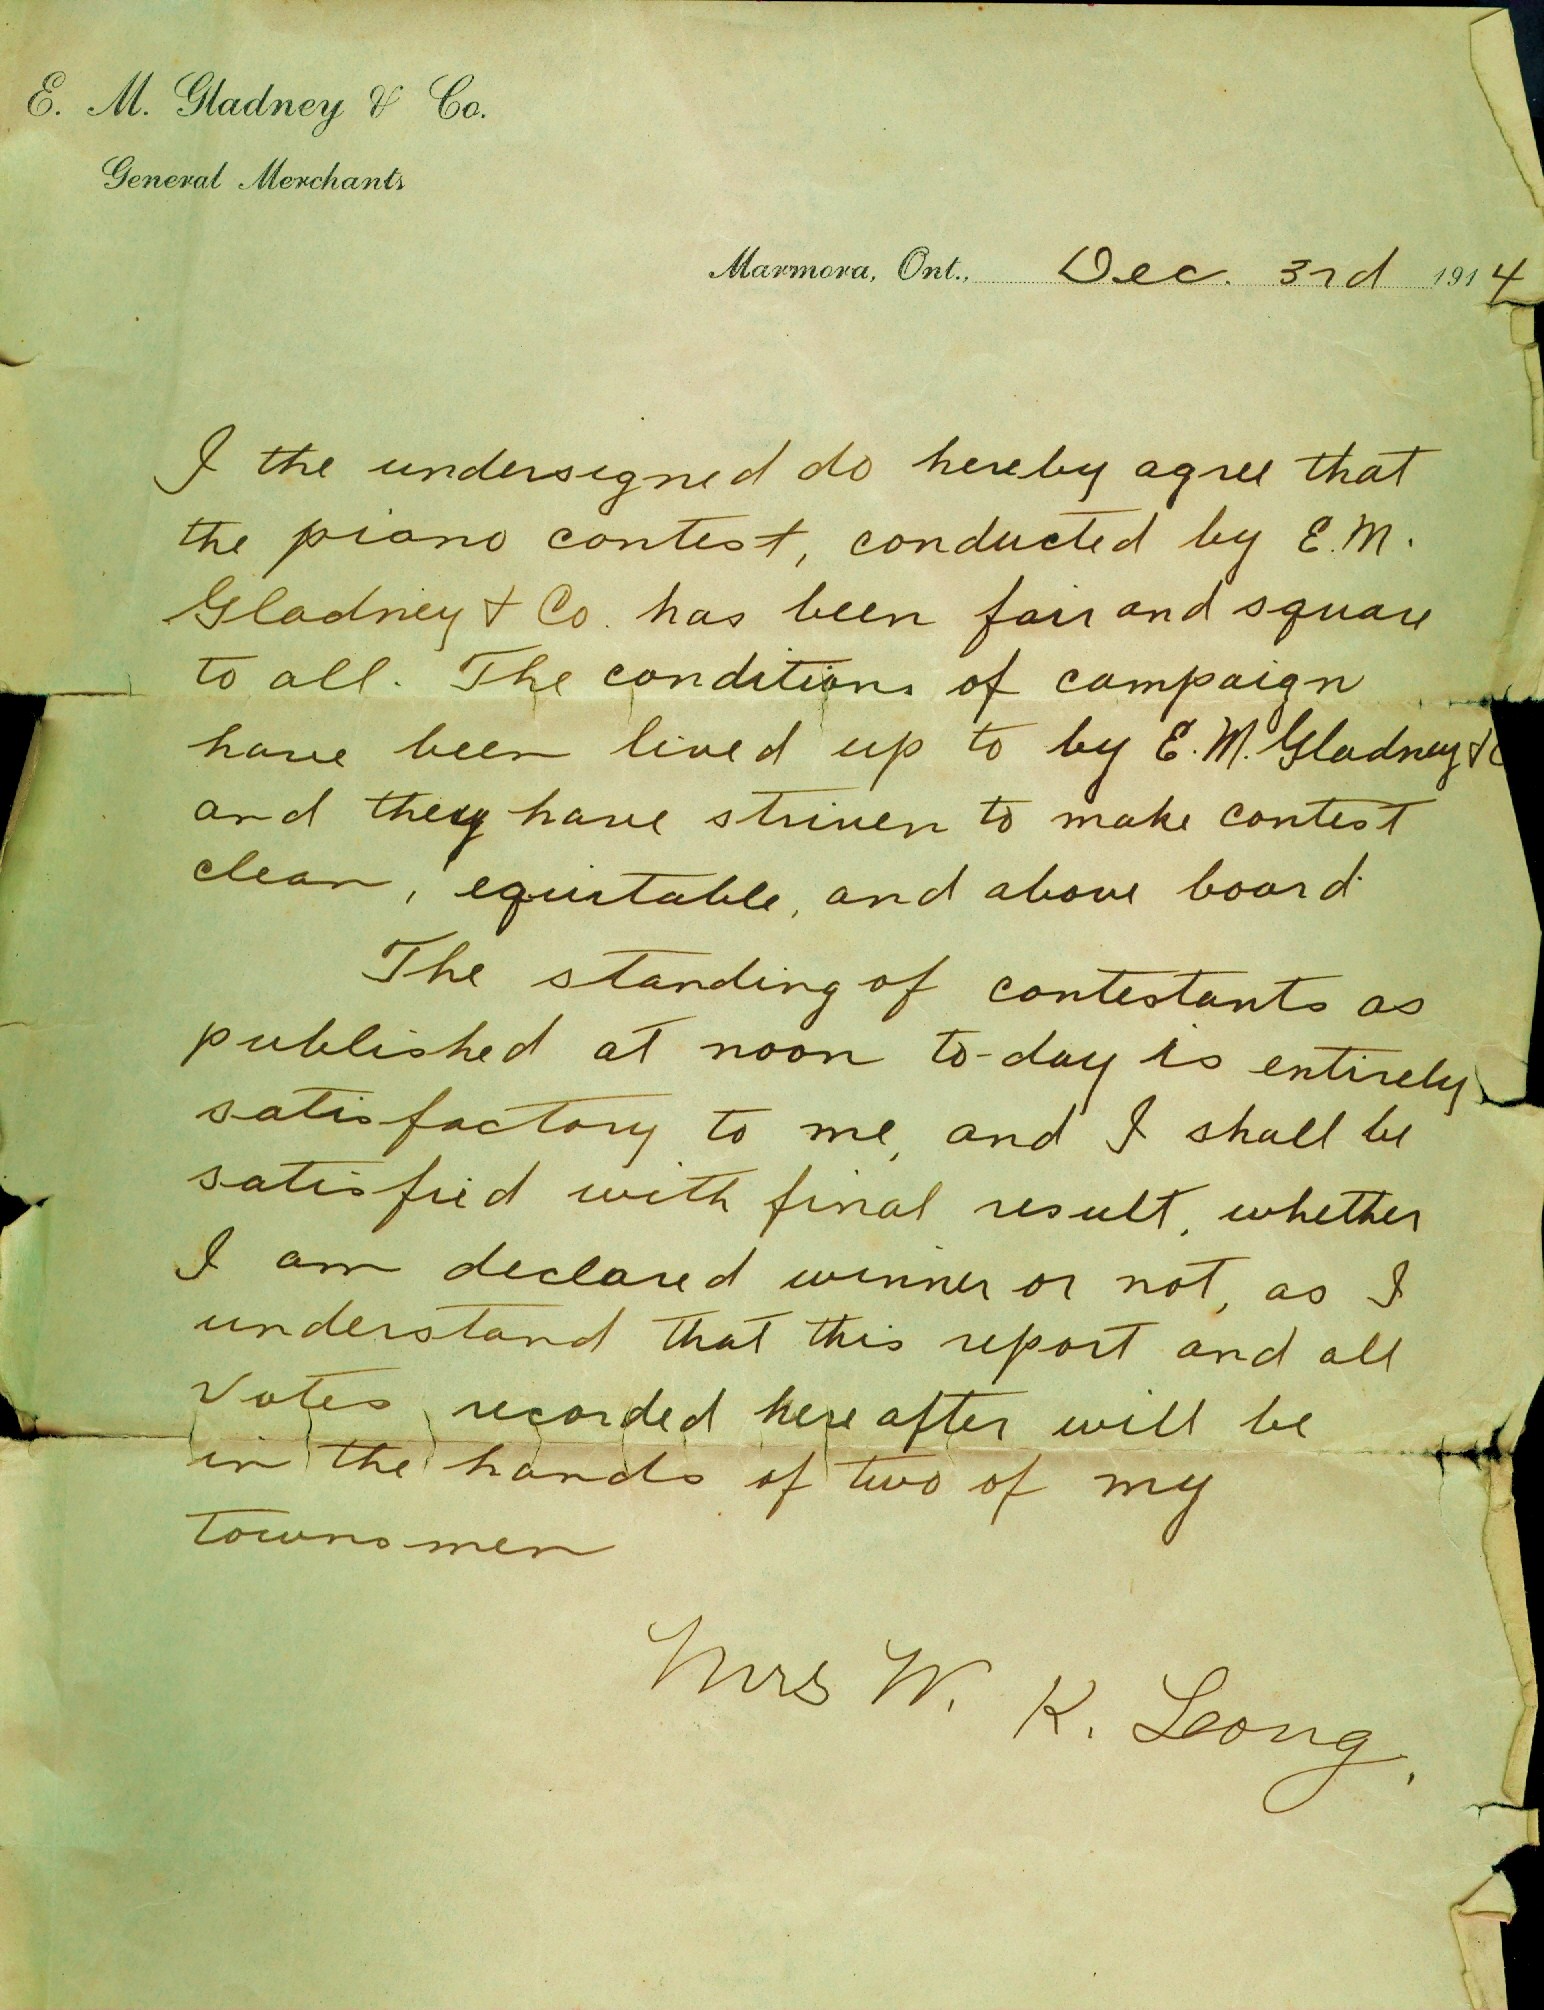 E. M. Gladney & Co.
General Merchants
Marmora, Ont., Dec. 3rd 1914
I the undersigned do hereby agree that
the piano contest, conducted by E.M.
Gladney & Co. has been fair and square
to all. The conditions of campaign
have been lived up to by E.M. Gladney & C
and they have striven to make contest
clean, equitable, and above board.
The standing of contestants as
published at noon to-day is entirely
satisfactory to me, and I shall be
satisfied with final result, whether
I am declared winner or not, as I
understand that this report and all
votes recorded hereafter will be
in the hands of two of my
townsmen
Mrs W. K. Leong.